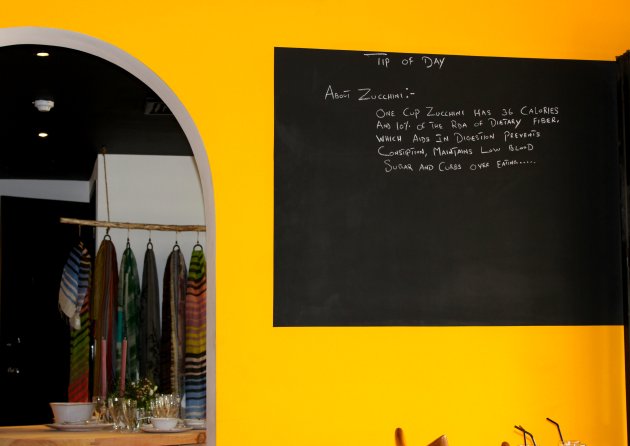 Tip of Day
About Zucchini:-
One Cup Zucchini Has 36 Calories
And 10% of the RDA of Dietary Fiber,
Which Aids In Digestion Prevents
Constiption, Maintains Low Blood
Sugar and Curbs over eating.....